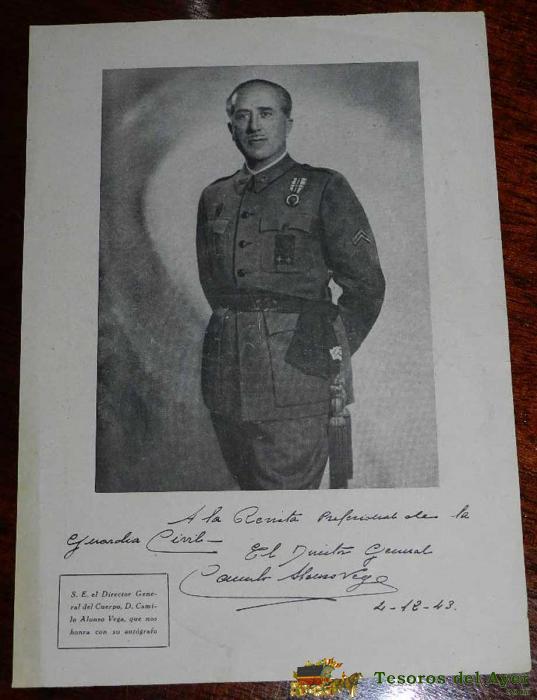 A la Revista Profesional de la
Guardia Civil
El Director General
Camilo Alonso Vega
2-12-43.
S. E. el Director Gene-
ral del Cuerpo, D. Cami-
lo Alonso Vega, que nos
honra con su autógrafo
Tesoros del Ayer